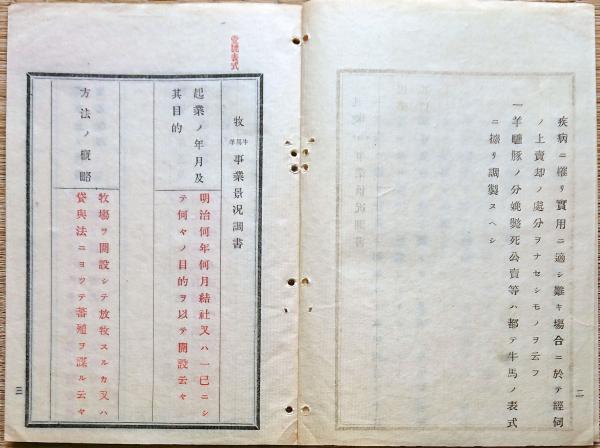 疾病ニ罹リ實用ニ適シ難キ場合ニ於テ經伺
ノ上賣却ノ處分ヲナセシモノヲ云フ
一羊驢豚ノ分娩斃死公賣等ハ都テ牛馬ノ表式
ニ據リ調製スヘシ
二
壹號表式
牧牛馬羊事業景况調書
起業ノ年月及
其目的
明治何年何月結社又ハ一己ニシ
テ何々ノ目的ヲ以テ開設云々
方法ノ概略
牧場ヲ開設シテ放牧スルカ又ハ
貸與法ニヨツテ蕃殖ヲ謀ル云々
三